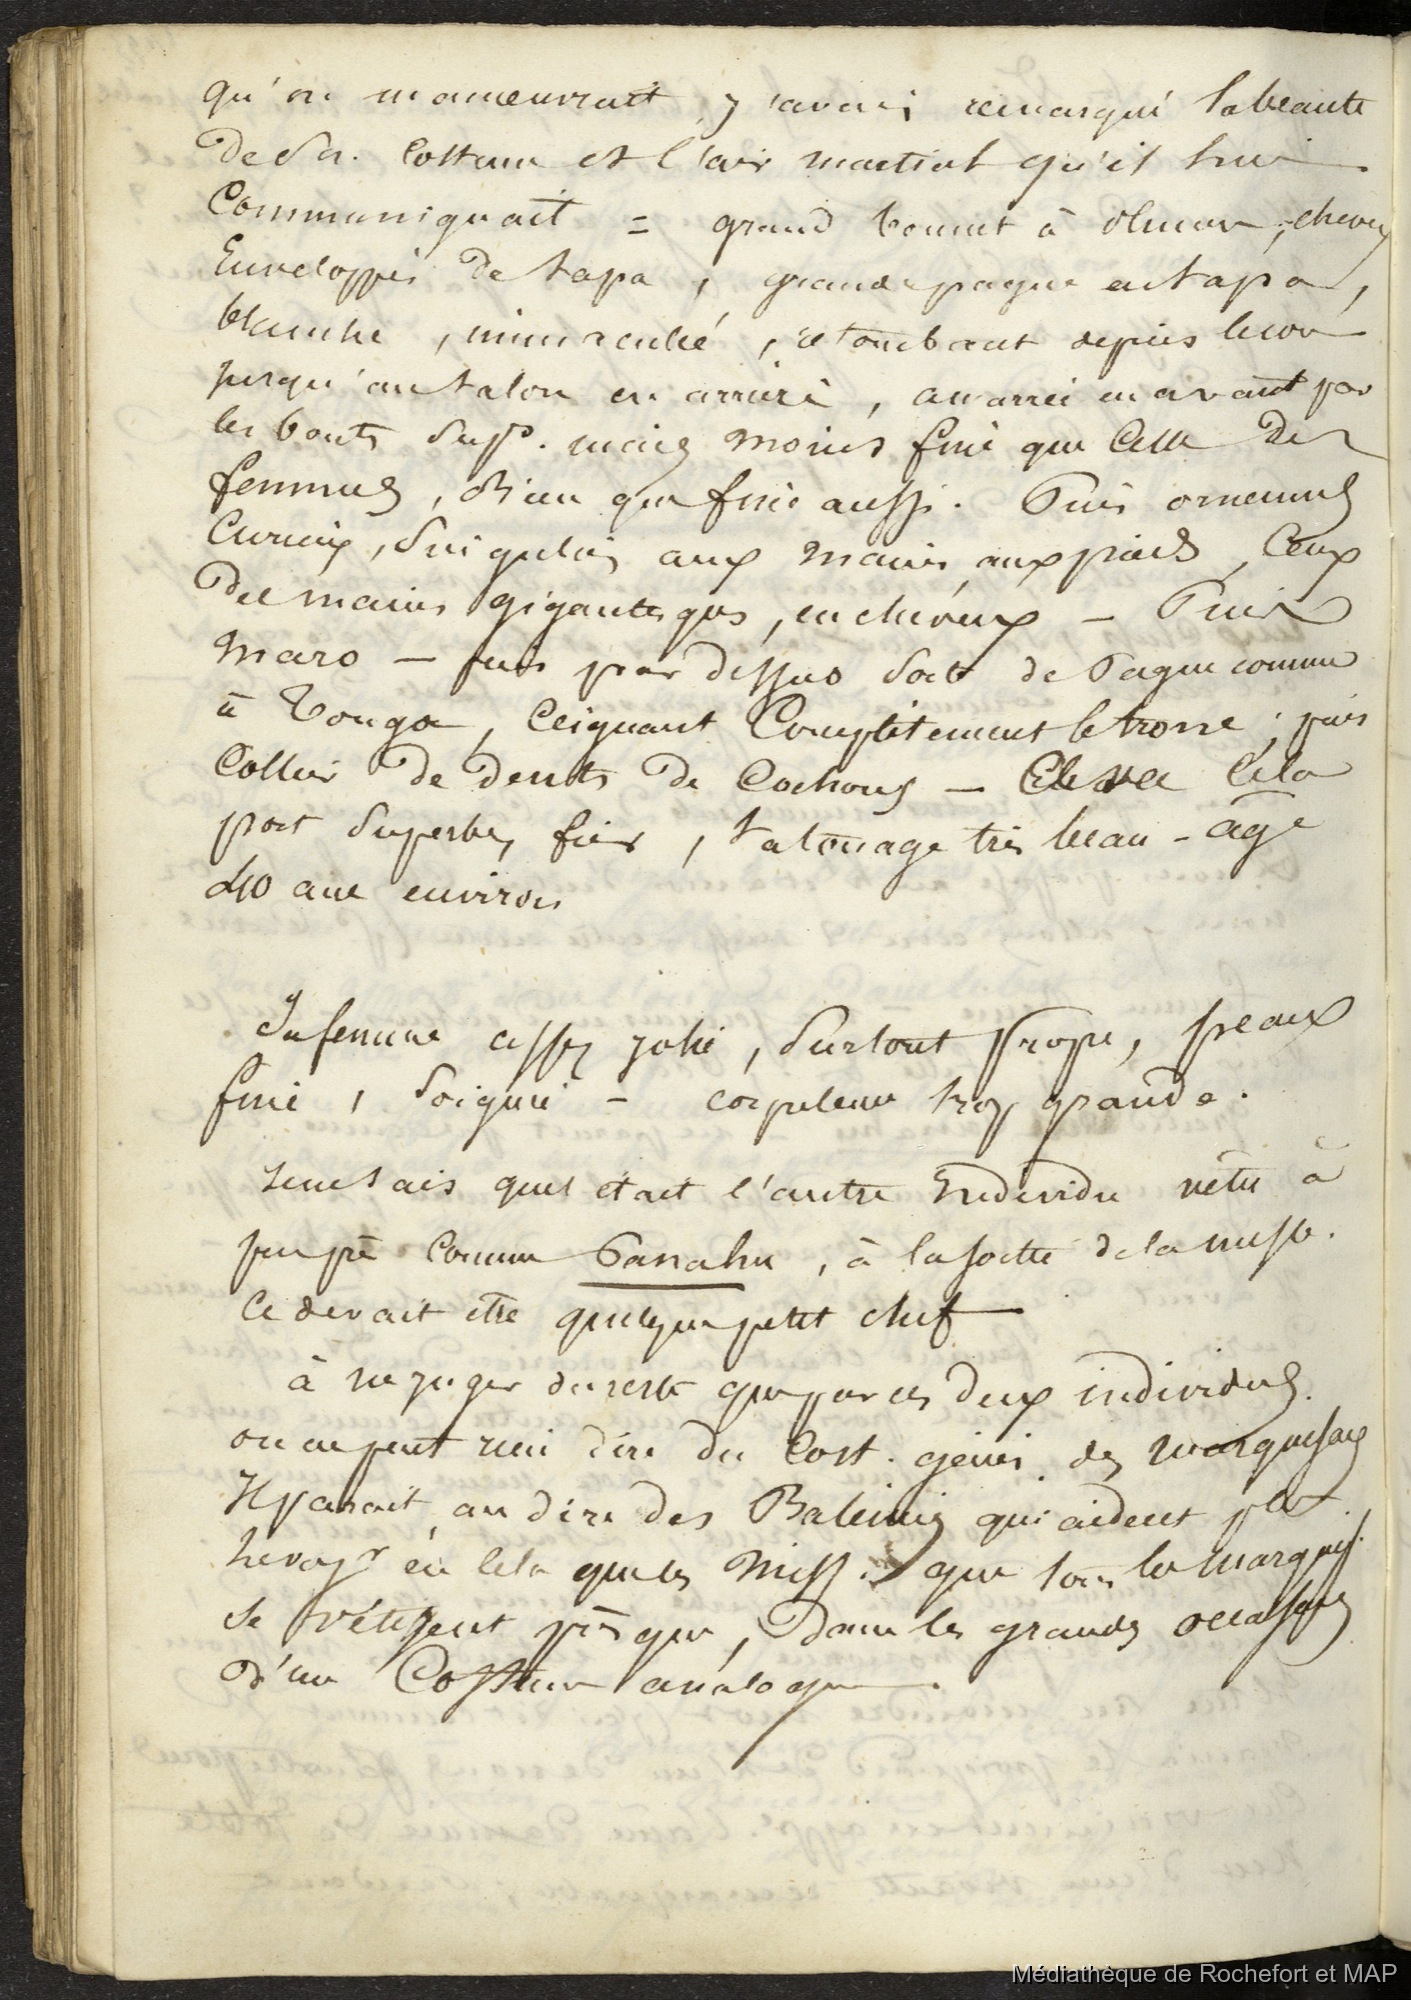 qu'on manoeuvrait, j'avais remarqué la beauté
de son costume et l'air martial qu'il lui
communiquait = grand bonnet à plumes, cheveux
enveloppés de tapa, grande pagne en tapa,
blanche, immaculée, retombant depuis le cou
jusqu'au talon en arrière, amarrée en avant par
les bouts supr. mais moins fine que celle des
femmes, bien que fine aussi. Puis ornements
curieux, singuliers aux mains, aux pieds, ceux
des mains gigantesques, en cheveux — Puis
maro — puis par dessus sorte de Pagne comme
à Tonga, ceignant complètement le torse ; puis
collier de dents de cochons — avec cela
port superbe, fier, tatouage très beau - âge
40 ans environ
Sa femme assez jolie, surtout propre, peau
fine, soignée - corpulence trop grande.
Je ne sais quel était l'autre individu vêtu à
peu près comme Panahu, à la sortie de la messe.
Ce devait être quelque petit chef —
à ne juger du reste que par ces deux individus
on ne peut rien dire du cost. génér. des marquisans
Il parait, au dire des Baleiniers qui aident plus
les voyrs en cela que les Miss. que tous les marquis.
se vêtissent presque, dans les grandes occasions
d'un costume analogue.
Médiathèque de Rochefort et MAP